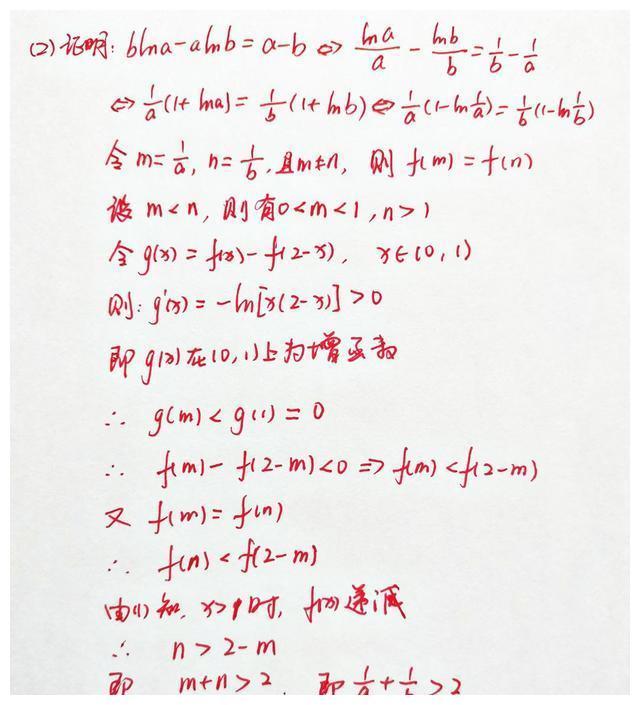 (2) 证明: blna-alnb=a-b ⇔ lna/a - lnb/b = 1/b - 1/a
⇔ 1/a(1+lna) = 1/b(1+lnb) ⇔ 1/a(1-ln1/a) = 1/b(1-ln1/b)
令 m=1/a, n=1/b, 且m≠n, 则 f(m)=f(n)
设 m<n, 则有0<m<1, n>1
令 g(x)=f(x)-f(2-x), x∈(0,1)
则: g'(x)=-ln[x(2-x)]>0
即 g(x)在(0,1)上为增函数
∴ g(m)<g(1)=0
∴ f(m)-f(2-m)<0 ⇒ f(m)<f(2-m)
又 f(m)=f(n)
∴ f(n)<f(2-m)
由(1)知, x>1时, f(x)递减
∴ n>2-m
即 m+n>2, 即 1/a+1/b>2